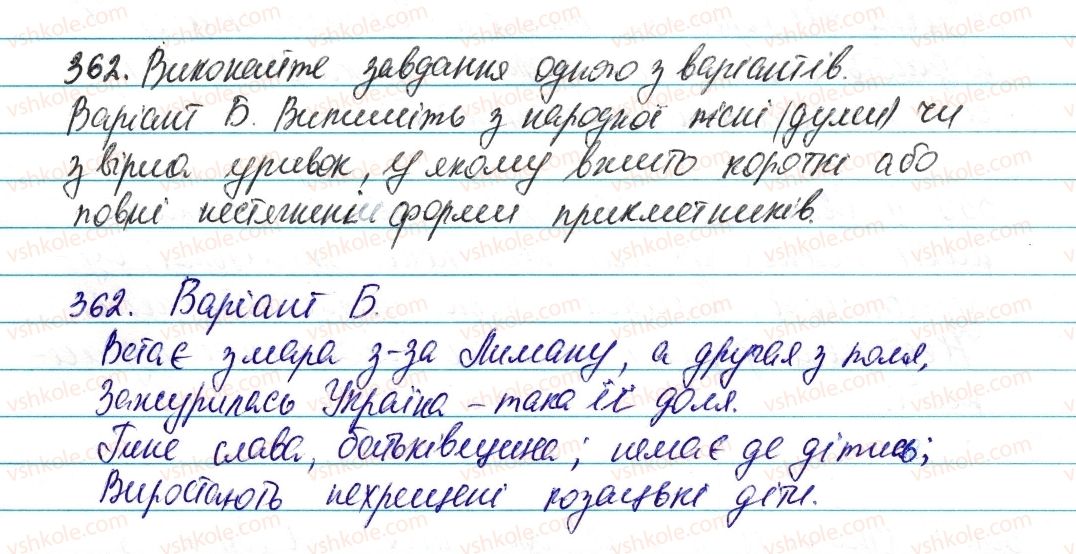 362. Виконайте завдання одного з варіантів.
Варіант Б. Випишіть з народної пісні (думи) чи
з вірша уривок, у якому вжито короткі або
повні нестягнені форми прикметників.
362. Варіант Б.
Встає хмара з-за Лиману, а другая з поля,
Зажурилась Україна - така її доля.
Гине слава, батьківщина; немає де дітись;
Виростають нехрещені козацькі діти.